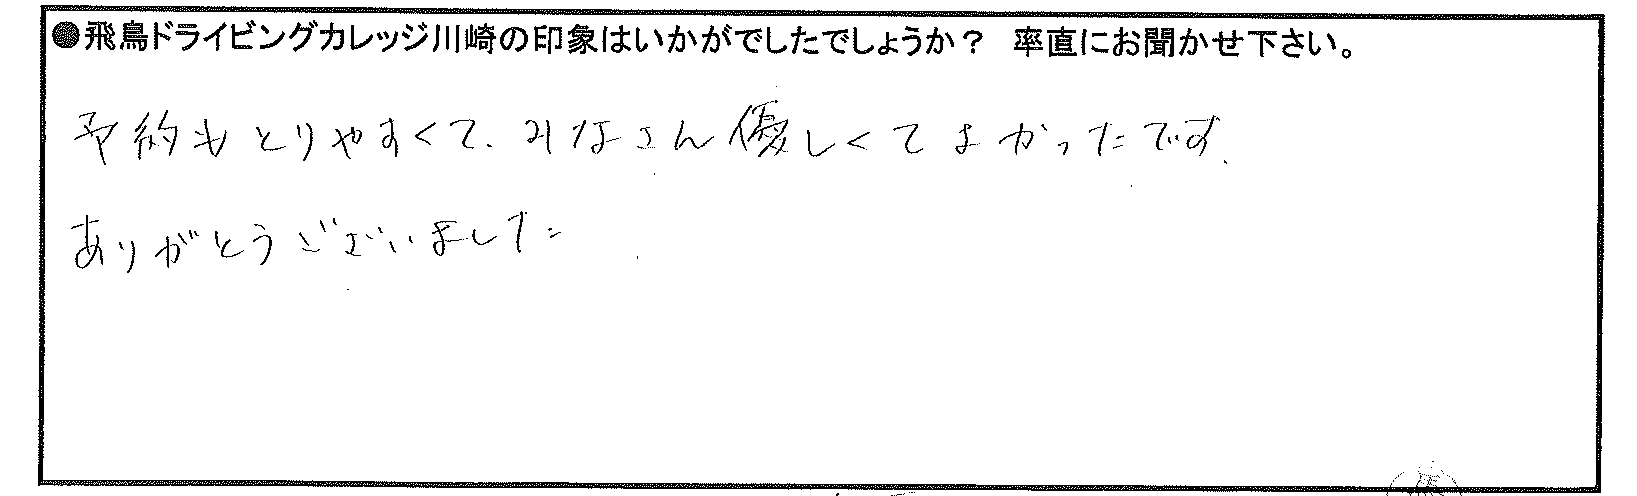 ●飛鳥ドライビングカレッジ川崎の印象はいかがでしたでしょうか？ 率直にお聞かせ下さい。
予約もとりやすくて、みなさん優しくてよかったです。
ありがとうございました